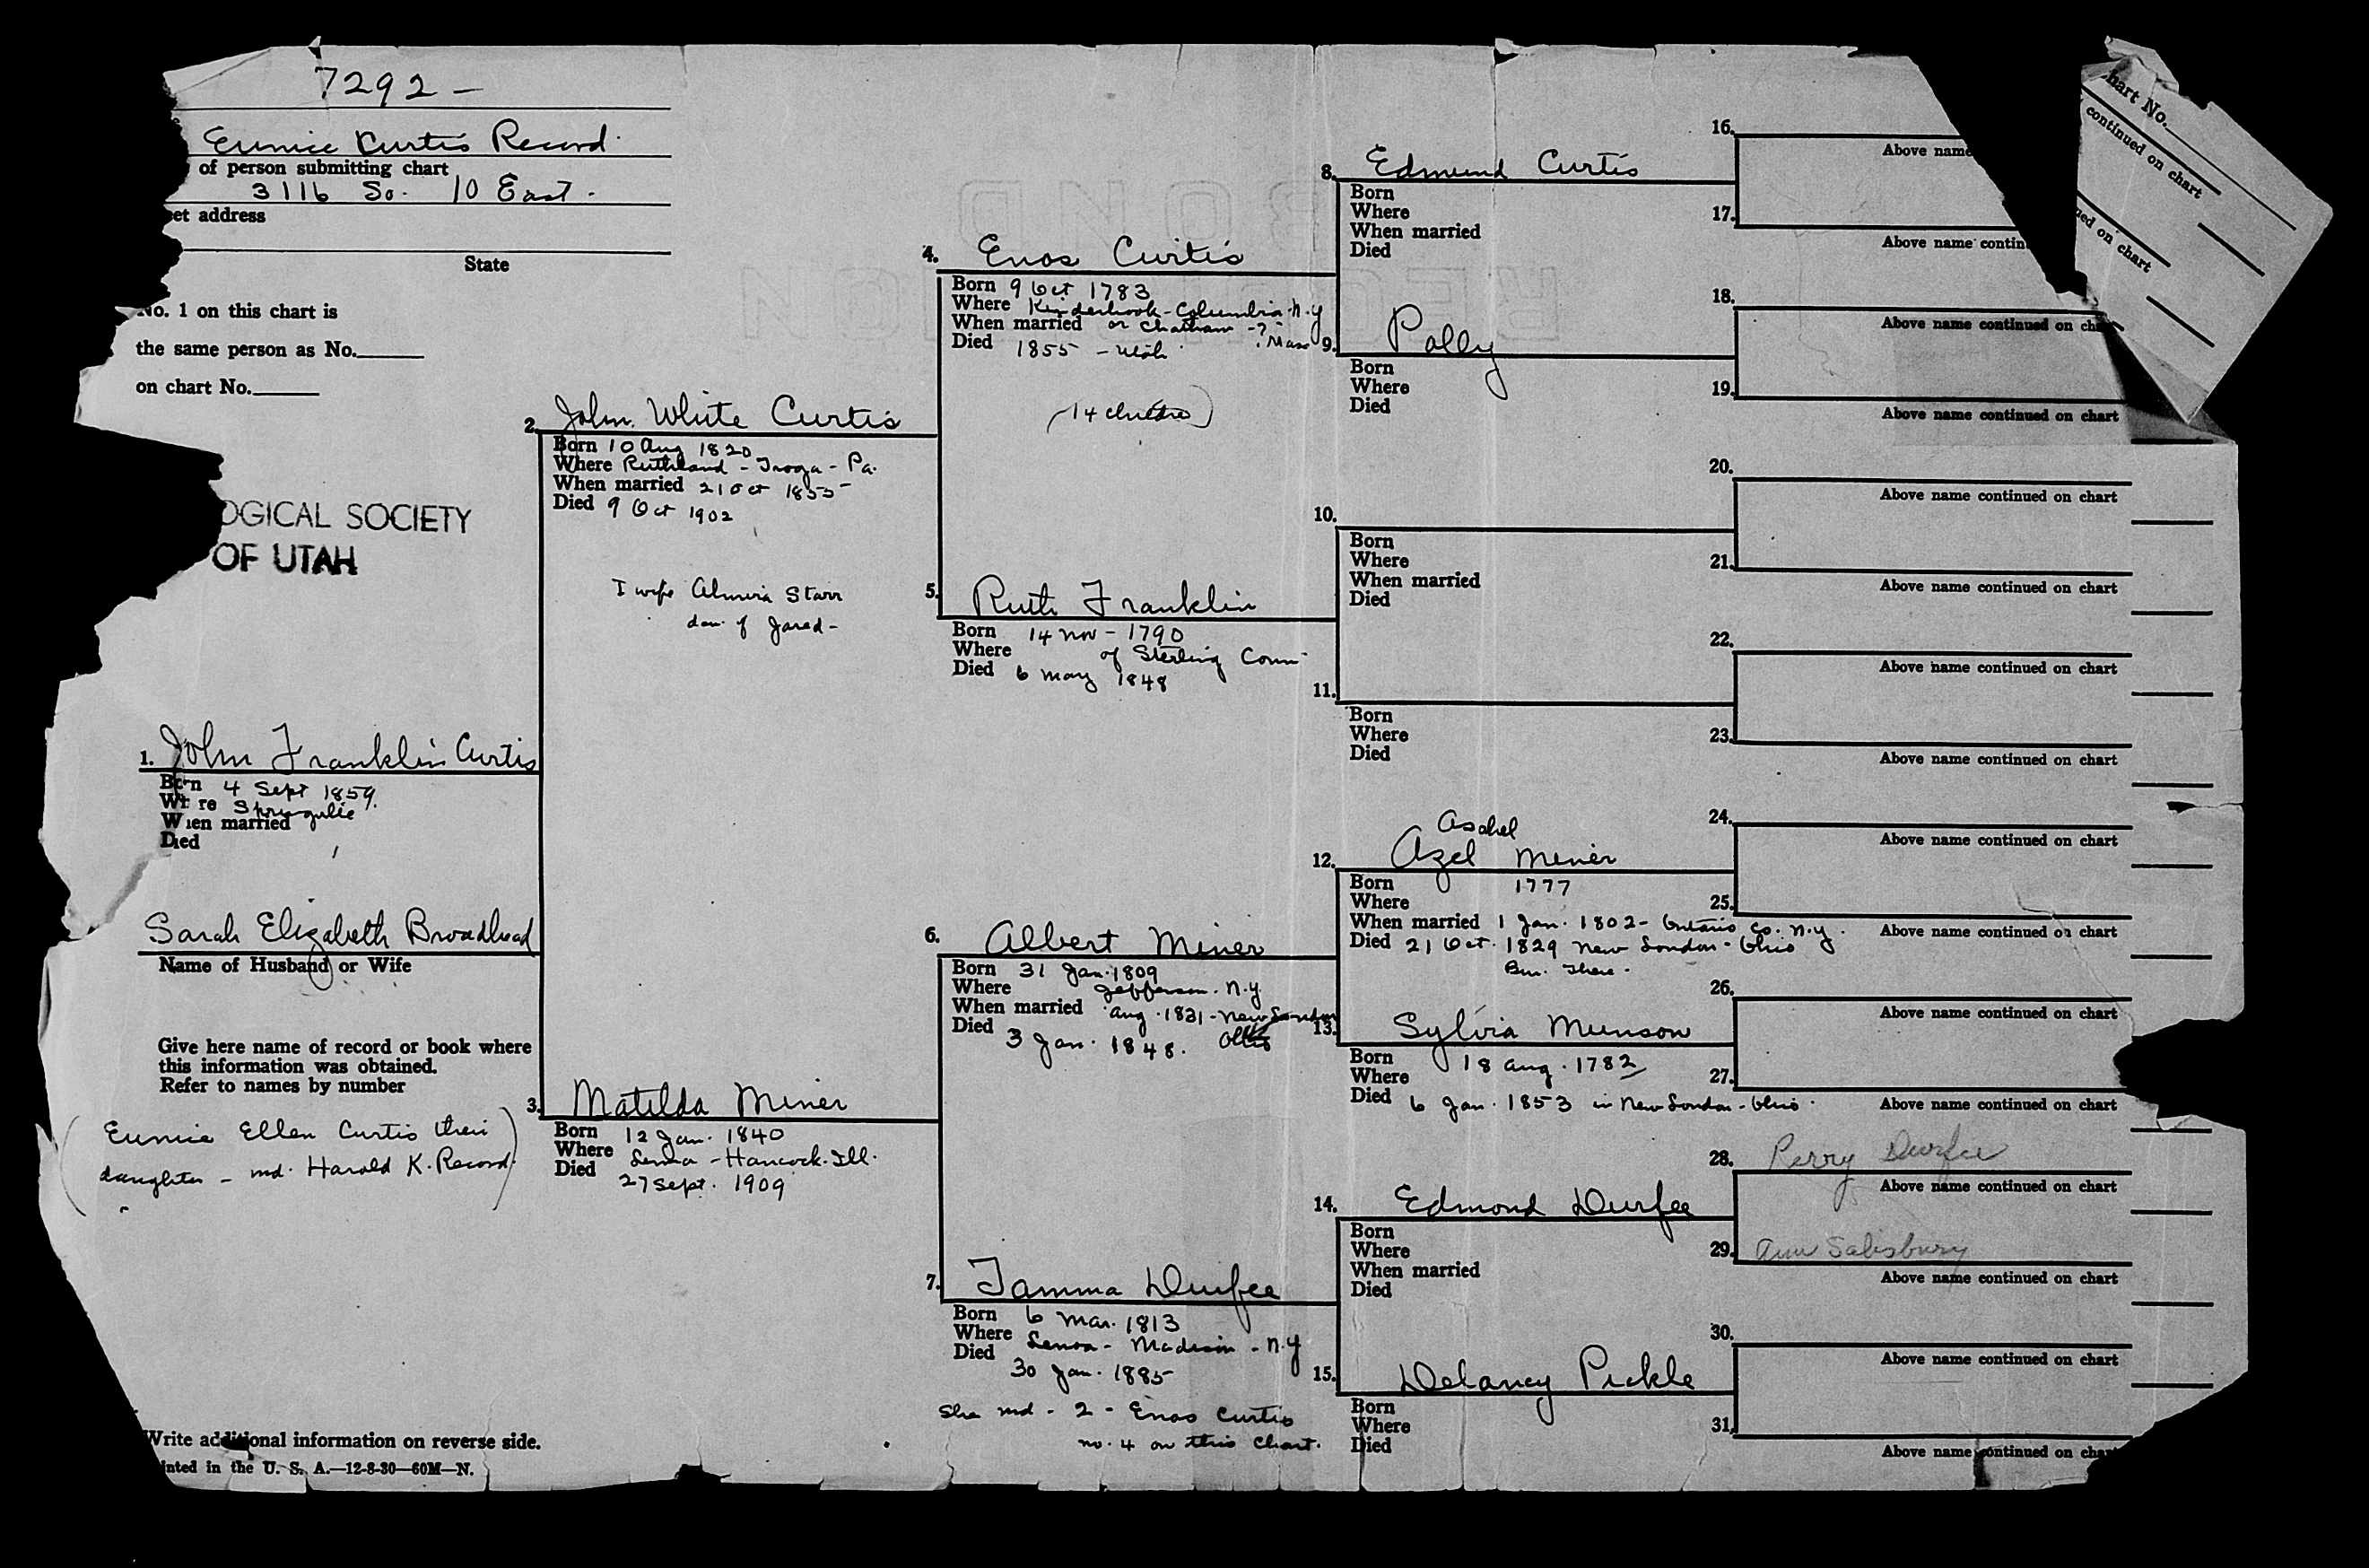 7292 -
Eunice Curtis Record.
of person submitting chart
3116 So. 10 East.
et address
State
No. 1 on this chart is
the same person as No.
on chart No.
OGICAL SOCIETY
OF UTAH
1. John Franklin Curtis
Born 4 Sept 1859.
Where
When married
Died
Sarah Elizabeth Broadhead
Name of Husband or Wife
Give here name of record or book where
this information was obtained.
Refer to names by number
(Eunice Ellen Curtis their
daughter - md. Harold K. Record.)
Write additional information on reverse side.
inted in the U. S. A.—12-8-30—60M—N.
2. John White Curtis
Born 10 Aug 1820
Where Ruthland - Troga - Pa.
When married 21 Oct 1855
Died 9 Oct 1902
I wife Almira Starr
dau. of Jared -
3. Matilda Miner
Born 12 Jan. 1840
Where Lima - Hancock. Ill.
Died 27 Sept. 1909
4. Enos Curtis
Born 9 Oct 1783
Where Kinderhook - Columbia - N.Y
When married or Chatham - ?
? Mass
Died 1855 - Utah
(14 children)
5. Ruth Franklin
Born 14 Nov - 1790
Where of Sterling Conn
Died 6 May 1848
6. Albert Miner
Born 31 Jan. 1809
Where Jefferson. N.Y.
When married Aug. 1831 - New London
Ohio
Died 3 Jan. 1848.
7. Tamma Durfee
Born 6 Mar. 1813
Where Lenox - Madison - N.Y
Died 30 Jan. 1885
She md - 2 - Enos Curtis
no. 4 on this chart.
8. Edmund Curtis
Born
Where
When married
Died
9. Polly
Born
Where
Died
10.
Born
Where
When married
Died
11.
Born
Where
Died
12. Asahel
Azel Miner
Born 1777
Where
When married 1 Jan. 1802 - Ontario Co. N.Y.
Died 21 Oct. 1829 New London - Ohio
Bur. there.
13. Sylvia Munson
Born 18 Aug. 1782
Where
Died 6 Jan. 1853 in New London - Ohio.
14. Edmond Durfee
Born
Where
When married
Died
15. Delaney Pickle
Born
Where
Died
16.
Above name
17.
Above name contin
18.
Above name continued on cha
19.
Above name continued on chart
20.
Above name continued on chart
21.
Above name continued on chart
22.
Above name continued on chart
23.
Above name continued on chart
24.
Above name continued on chart
25.
Above name continued on chart
26.
Above name continued on chart
27.
Above name continued on chart
28. Perry Durfee
Above name continued on chart
29. Ann Salisbury
Above name continued on chart
30.
Above name continued on chart
31.
Above name continued on cha
hart No.
continued on chart
ued on chart